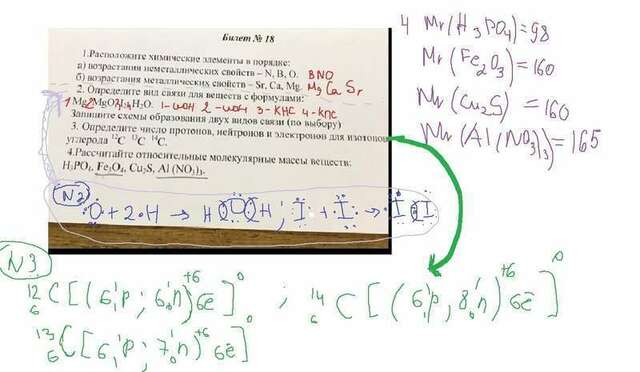 Билет № 18
1.Расположите химические элементы в порядке:
а) возрастания неметаллических свойств – N, B, O. BNO
б) возрастания металлических свойств – Sr, Ca, Mg. Mg Ca Sr
2. Определите вид связи для веществ с формулами:
H₂O. 1-ион 2-ион 3-КНС 4-кпс
Запишите схемы образования двух видов связи (по выбору)
3. Определите число протонов, нейтронов и электронов для изотопов
углерода ¹²C ¹³C ¹⁴C.
4.Рассчитайте относительные молекулярные массы веществ:
H₃PO₄, Fe₂O₃, Cu₂S, Al (NO₃)₃.
4 Mr(H₃PO₄)=98
Mr(Fe₂O₃)=160
Mr(Cu₂S)=160
Mr(Al(NO₃)₃=165
N2 O + 2·H → H O H; I + I → I I
N3
¹²₆C[(6¹₁p; 6¹₀n)⁺⁶6ē]⁰ ; ¹⁴₆C[(6¹₁p, 8¹₀n)⁺⁶6ē]⁰
¹³₆C[(6¹₁p; 7¹₀n)⁺⁶6ē]⁰